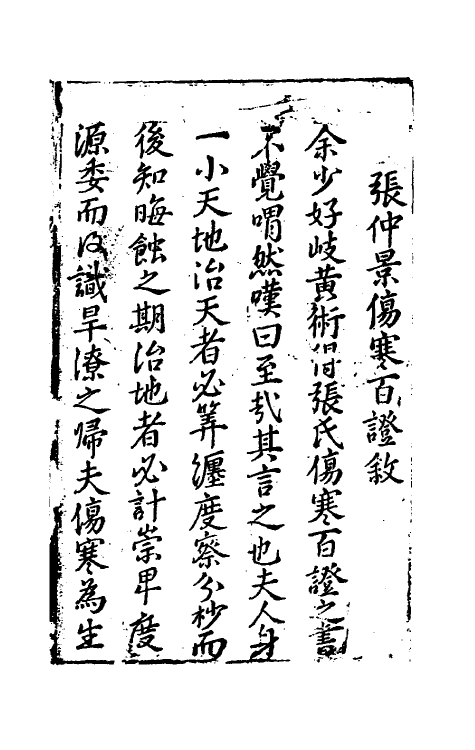 張仲景傷寒百證敘
余少好岐黃術得張氏傷寒百證之書
不覺喟然嘆曰至哉其言之也夫人身
一小天地治天者必筭纏度察分杪而
後知晦蝕之期治地者必計崇卑度
源委而後識旱潦之歸夫傷寒為生